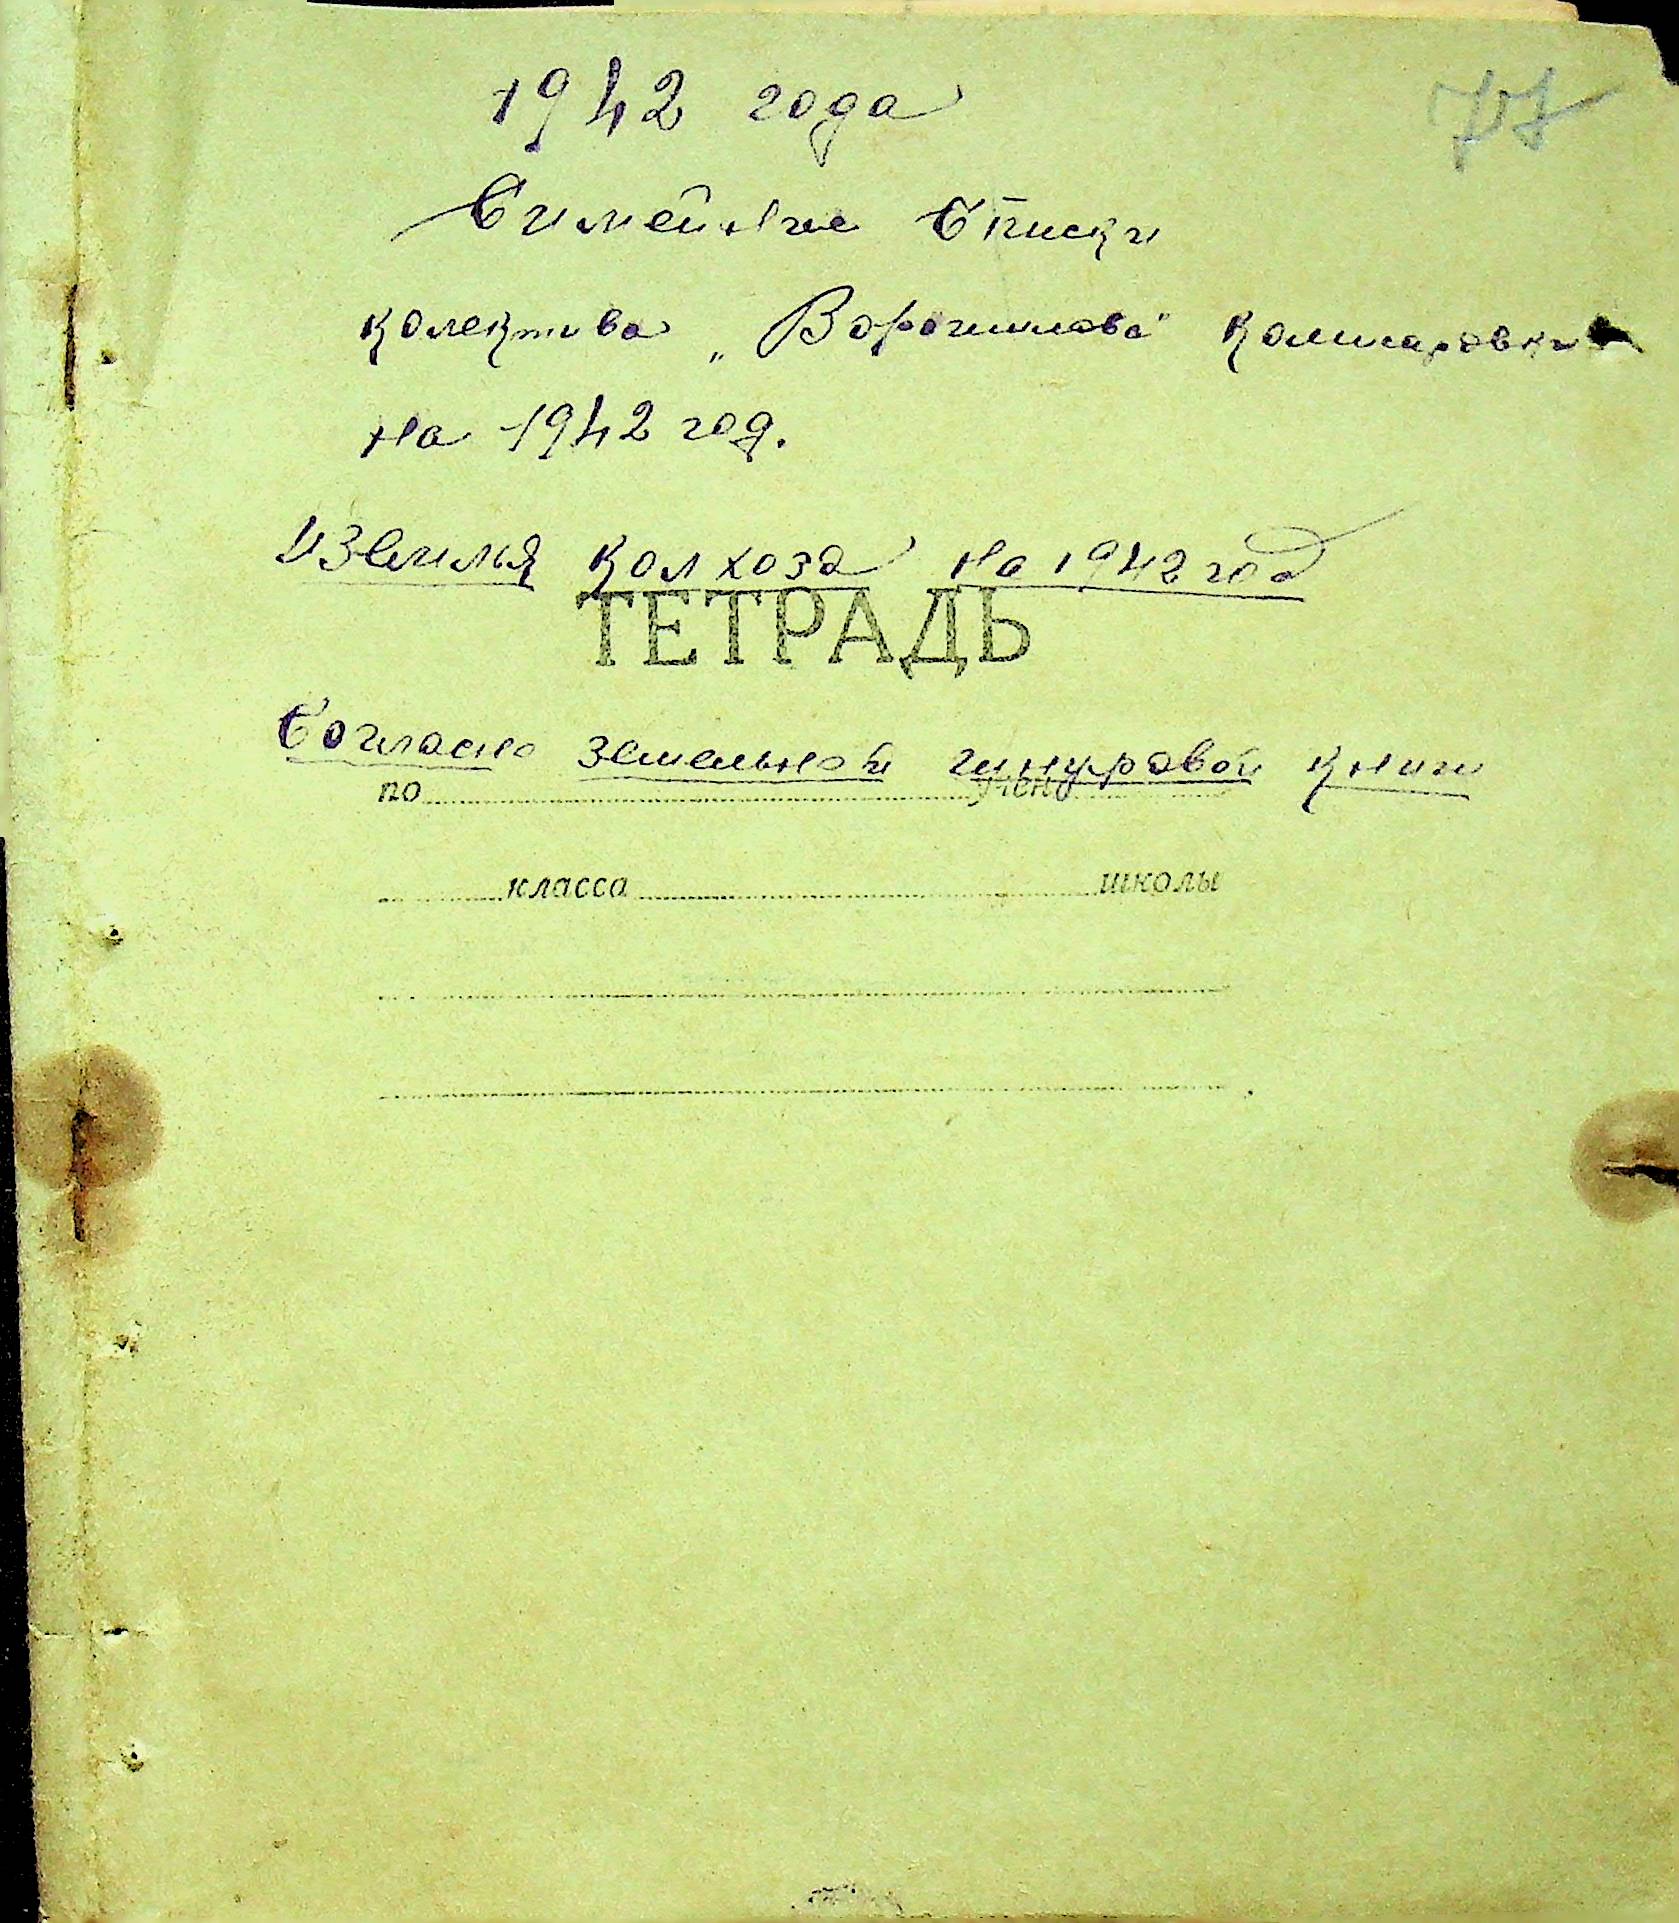 77
1942 года
Симейные Списки
колектива „Ворошилова" Комисаровки
на 1942 год.
И Земля колхоза на 1942 год
ТЕТРАДЬ
Согласно земельной шнуровой книги
по учен
класса школы